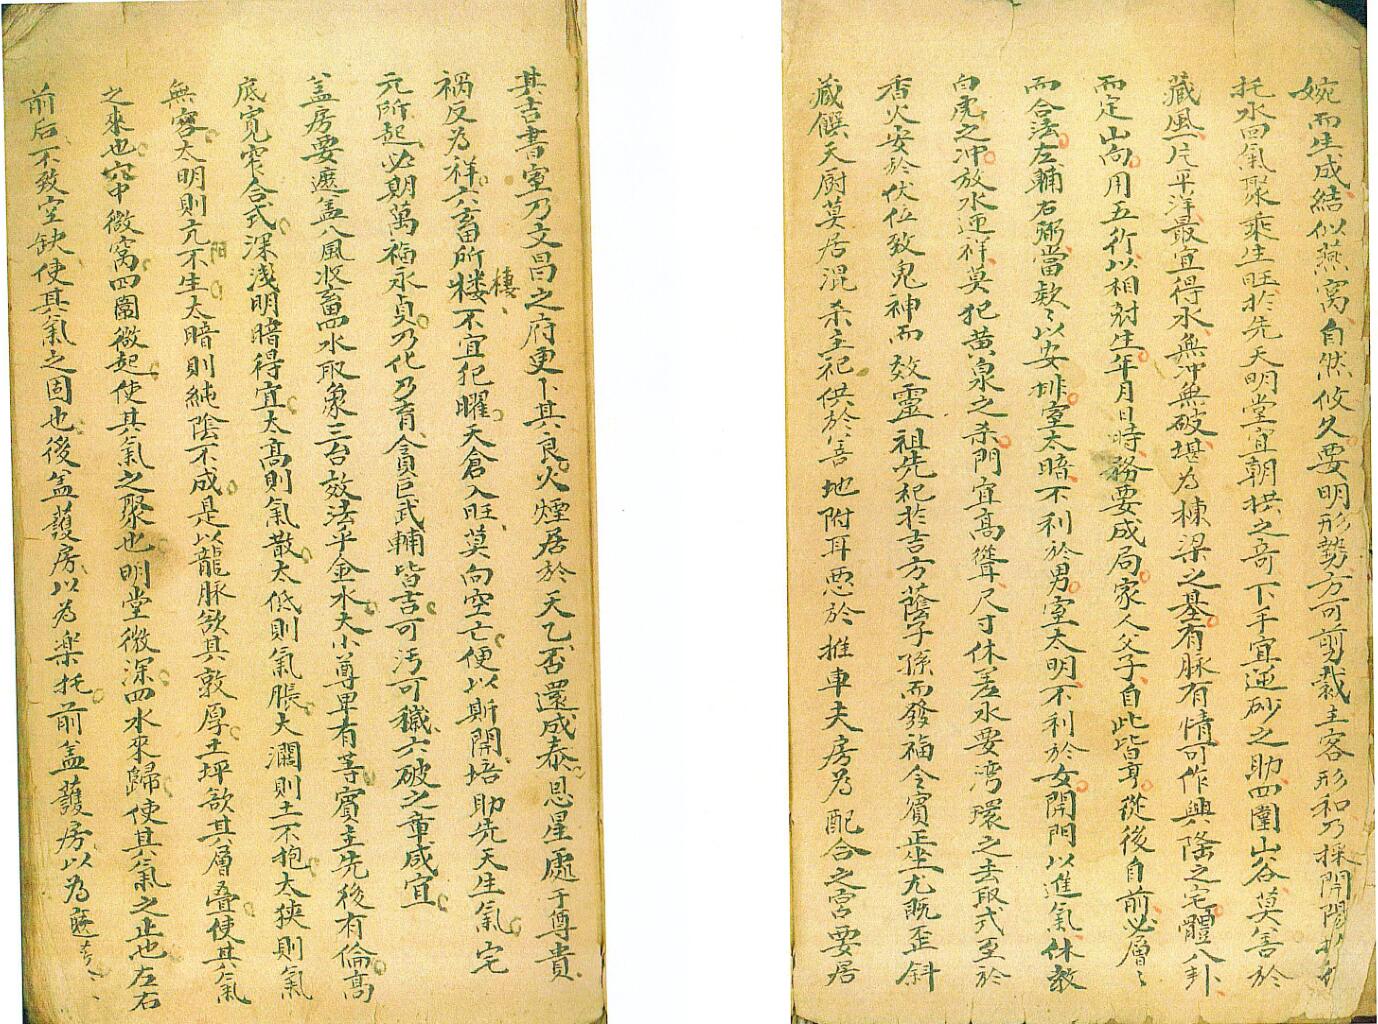 婉而生成結似燕窩自然攸久要明形勢方可剪裁主客形和乃採開陽
托水四氣聚乘生旺於先天明堂宜朝拱之奇下手宜逆砂之助四圍山谷莫善於
藏風一片平洋最宜得水無冲無破堪為棟梁之基有脉有情可作興隆之宅體八卦
而定山向用五行以相尅生年月日時務要成局家人父子自此皆亨從後自前必層〻
而合法左輔右弼當欵〻以安排室太暗不利於男室太明不利於女開門以進氣休教
白虎之冲放水迎祥莫犯黄泉之杀門宜高聳尺寸休差水要湾環之去取式至於
香火安於伏位致鬼神而效靈祖先祀於吉方蔭子孫而發福令賓正坐尤既歪斜
藏饌天厨莫居混杀主祀供於善地附耳惡於推車夫房為配合之宮要居
其吉書室乃文昌之府更卜其良火煙居於天乙否還成泰恩星處于尊貴
祸反為祥六畜所楼不宜犯曜天倉入旺莫向空亡便以斯開培助先天生氣宅
棲
元所起必期萬福永貞乃化乃育貪巨武輔皆吉可汚可穢六破之章咸宜
盖房要遮盖八風收蓄四水取象三台效法乎金水大小尊卑有等賓主先後有倫高
底寬窄合式深淺明暗得宜太高則氣散太低則氣脹大濶則土不抱太狹則氣
無容太明則亢不生太暗則純陰不成是以龍脉欲其敦厚土坪欲其層叠使其氣
之來也穴中微窩四圍微起使其氣之聚也明堂微深四水來歸使其氣之止也左右
前后不致空缺使其氣之固也後盖護房以為楽托前盖護房以為